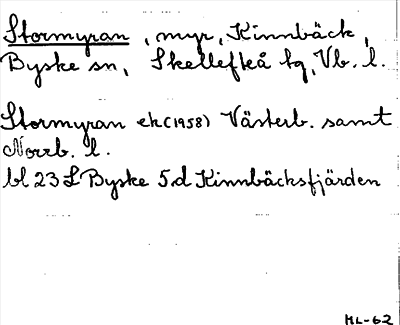 Stormyran, myr, Kinnbäck,
Byske sn, Skellefteå tg, Vb. l.
Stormyran ek (1958) Västerb. samt
Norrb. l.
bl 23 L Byske 5d Kinnbäcksfjärden
HL-62